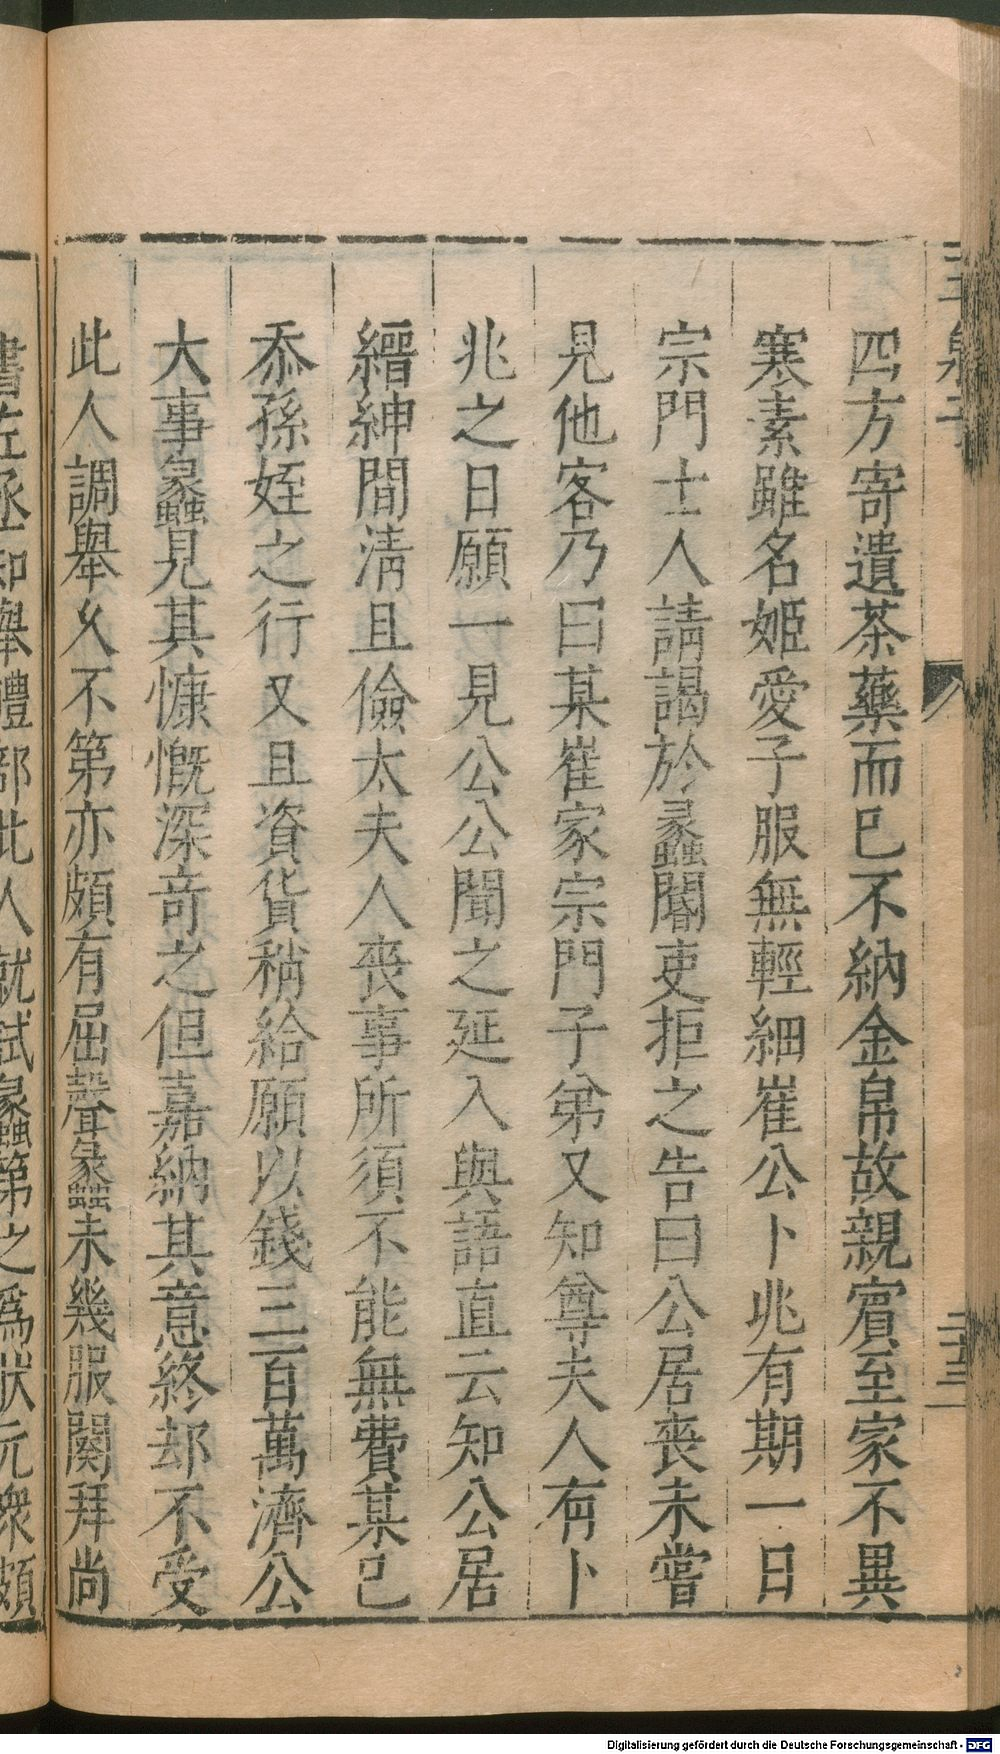 四方寄遺茶藥而已不納金帛故親賓至家不異
寒素雖名姬愛子服無輕細崔公卜兆有期一日
宗門士人請謁於蠡閽吏拒之告曰公居喪未嘗
見他客乃曰某崔家宗門子弟又知尊夫人有卜
兆之日願一見公公聞之延入與語直云知公居
縉紳間清且儉太夫人喪事所須不能無費某已
忝孫姪之行又且資貨稍給願以錢三百萬濟公
大事蠡見其慷慨深奇之但嘉納其意終却不受
此人調舉久不第亦頗有屈聲蠡未幾服闋拜尚
書左丞知舉禮部此人就試蠡第之爲狀元衆頗
Digitalisierung gefördert durch die Deutsche Forschungsgemeinschaft - DFG